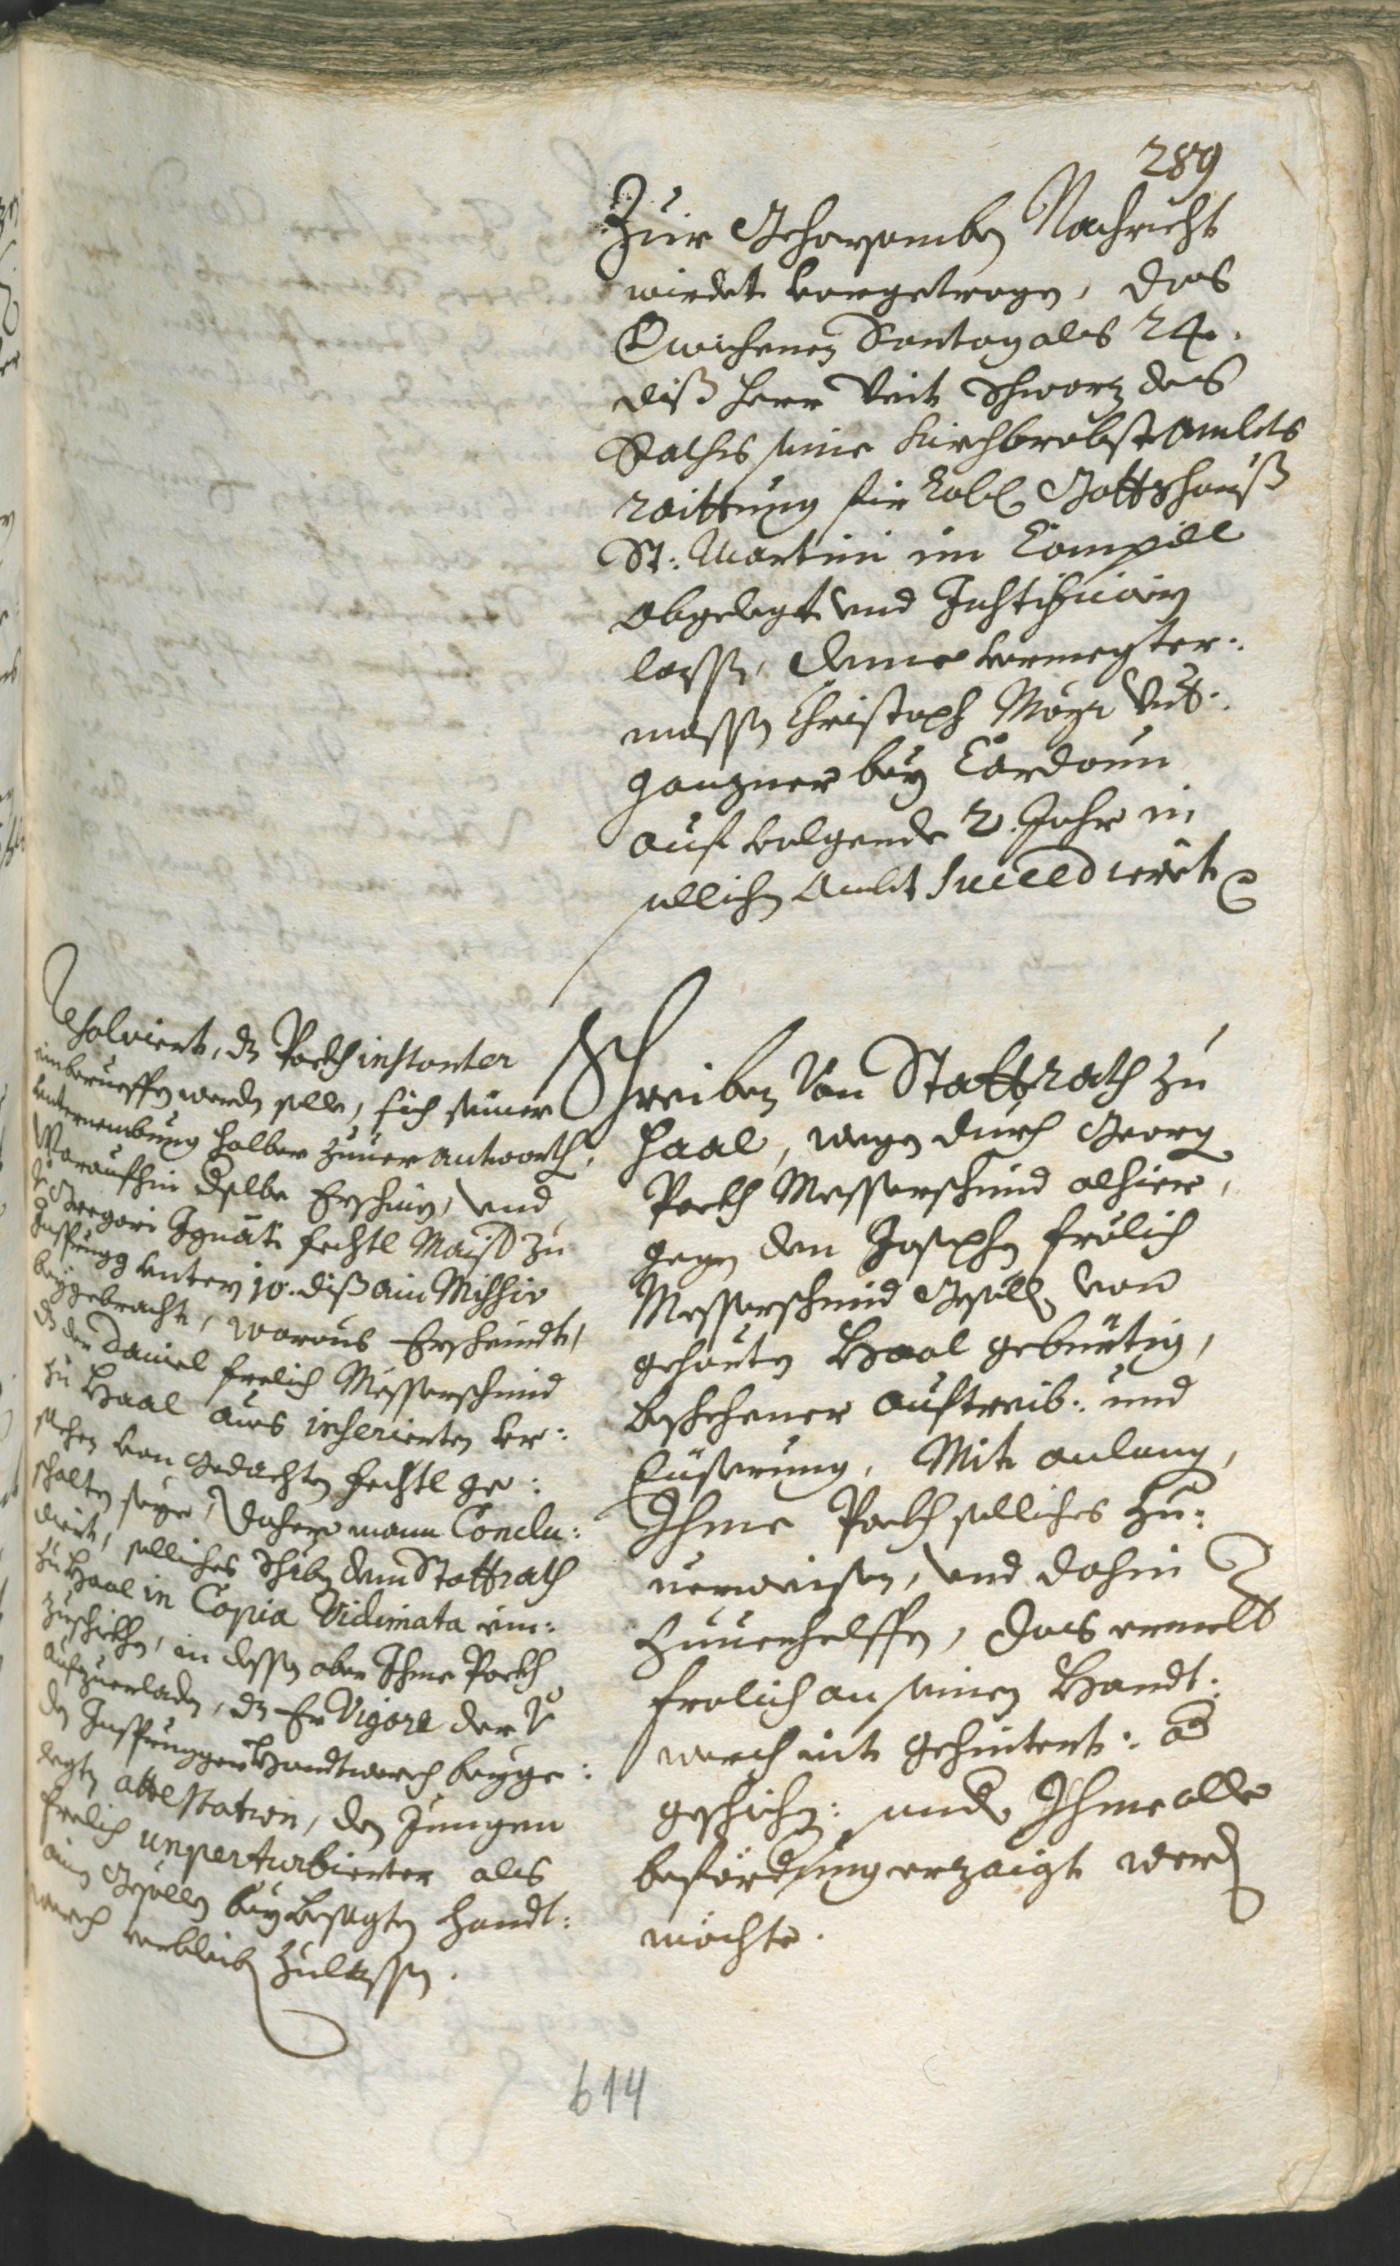 289
Zur Gehorsamben Nachricht
wirdet vorgetragen, das
Erwichenen Sontag als 24.
diß herr Veit Schwarz des
Raths seine Kirchbrobst Ambts
raittung für Lobl. Gottshauß
St: Martini im Campill
abgelegt und Justificiern
lassen, deme vermegter:
massen Christoph Mayr Unt:
ganzner bey Cardaun
auf volgende 2. Jahr in
sollichen Ambt Succediert
Schreiben Von Stattrath zu
Haal, wegen durch Georg
Porth Messerschmid alhier,
gegen den Josephen frölich
Messerschmid Gesellen von
gehörten Haal gebürtig,
beschehener auftreib: und
eüsserung, Mit anlang,
Ihme Porth solliches zu:
verweisen, und dahin
zuverhelffen, das ermelt
frölich an seinen Handt:
werch nit gehintert: od
geschichen: und Ihme alle
beförderung erzaigt werden
möchte.
Resolviert, dz Porth instanter
einberueffen werden solle, sich seiner
unternembung halber zuverantworth.
Woraufhin dselbe Erschinen, und
Gregori Ignati fechtl Maister zu
Insprugg unterm 10. diß ain Missiv
beygebracht, woraus Erscheindt,
dz der Daniel frelich Messerschmid
zu Haal aus inserierten Ver:
sachen von gedachten fechtl ge:
schalten seye, Dahero man Conclu:
diert, solliches Schreiben dem Stattrath
zu Haal in Copia Vidimata ein:
zuschickhen, in dessen aber Ihme Porth
aufzuerladen, dz Er Vigore der
den Insprugger Handtwerch beyge:
legten attestation, den Jungen
frelich unperturbierter als
ainen Gesellen bey besagten Handt:
werch verbleiben zulassen.
614